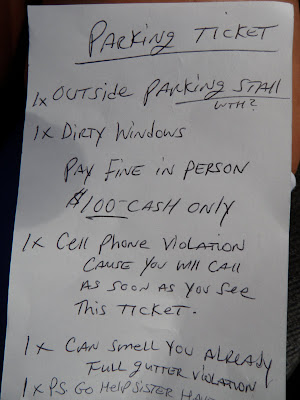 PARKING TICKET
1x OUTSIDE PARKING STAll
WTH?
1x DIRTY WINDOWS
PAY FINE IN PERSON
$100- CASH ONLY
1x Cell PHONE VIOLATION
CAUSE YOU WIll CAll
AS SOON AS YOU SEE
THIS TICKET.
1x CAN SMEll YOU AlREADY
FUll GUTTER VIOLATION
1x P.S. GO HElP SISTER